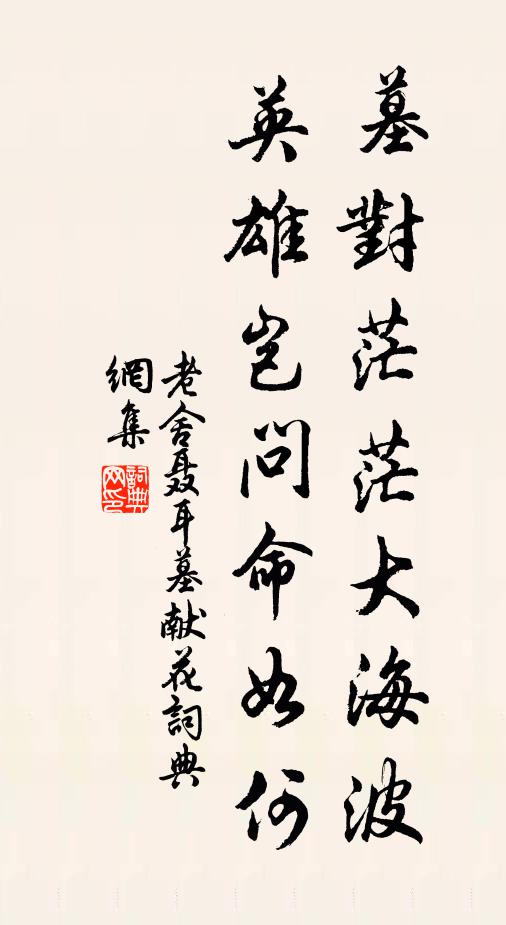 墓對茫茫大海波
英雄岂問命如何
老舍聂耳墓献花詞典
網集
詞典
网印